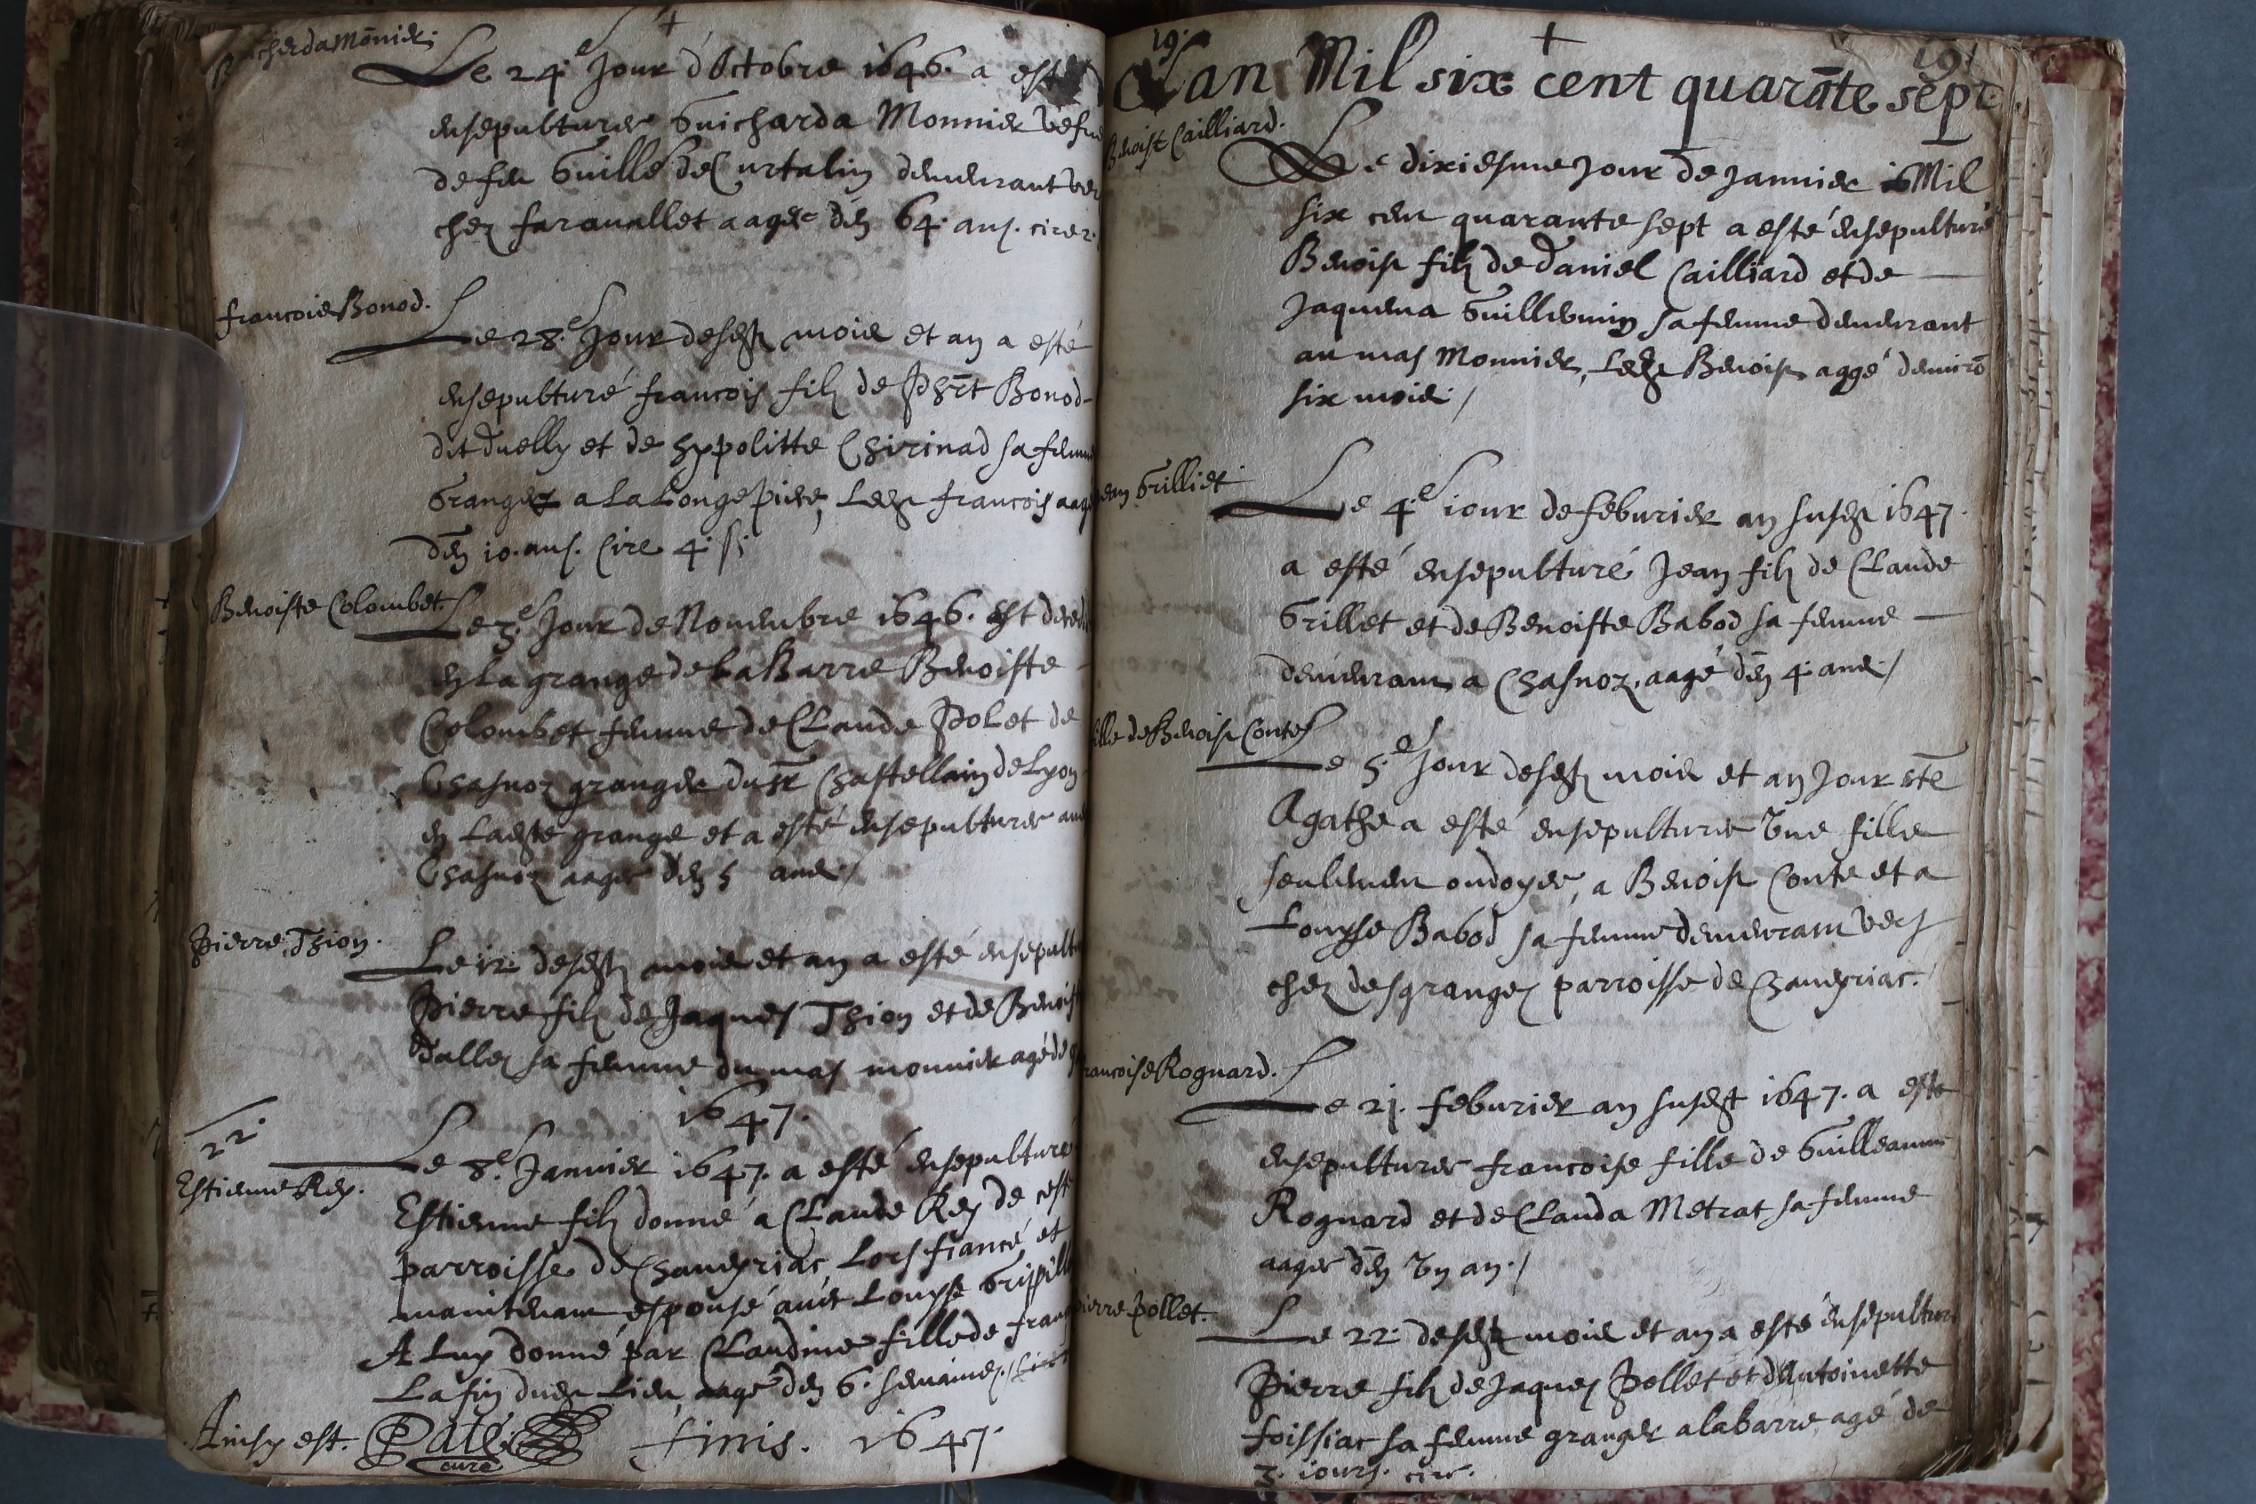 Guicharda Monnier.
Le 24.e Jour d'Octobre 1646. a esté
ensepulturee Guicharda Monnier vefue
de feu Guille de Curtalin demeurant ver
chez faraullet aagee den 64. ans. cire 2.
francois Bonod.
Le 28.e Jour desdt mois et an a esté
ensepulturé francois filz de Phbt Bonod
dit duelly et de hyppolitte Chirinad sa femme
Granger a la Longe piere, Ledt francois aagé
den 10. ans. Cire 4. s.
Benoiste Colombet.
Le 3.e Jour de Nouembre 1646. est decedée
en La grange de La Barre Benoiste
Colombet femme de Claude Polet de
Chasnoz granger du sr Chastellain de Lyon
en Ladte grange et a esté ensepulturee au
Chasnoz aagee den 5 ans /
Pierre Thion.
Le 12. desdt mois et an a esté ensepulturé
Pierre filz de Jaques Thion et de Benoiste
dallez sa femme du mas monnier agé de
1647.
22.
Estienne Rey.
Le 8.e Januier 1647. a esté ensepulturé
Estienne filz donné a Claude Rey de ceste
parroisse de Chaueyriac Lors fiancé et
maintenant espousé auec Louyse Gripill
A Luy donné par Claudine fille de franc
La fin dudt Lieu, aagé den 6. semaines. Cire
Ainsy est. Paté curé finis. 1647.
19. 191
L'an Mil six cent quarāte sept.
Benoist Cailliard.
Le dixiesme jour de Januier Mil
six cent quarante sept a esté ensepulturé
Benoist filz de Daniel Cailliard et de
Jaquema Guillemin sa femme demeurant
au mas Monnier, Ledt Benoist aggé denuirō
six mois /
Jean Grilliet
Le 4.e iour de feburier an susdt 1647.
a esté ensepulturé Jean filz de Claude
Grillet et de Benoiste Babod sa femme
demeurant a Chasnoz, aagé den 4. ans /
fille de Benoist Conte
Le 5.e Jour desdt mois et an Jour ste
Agathe a esté ensepulturee Vne fille
seulement ondoyee, a Benoist Conte et a
Louyse Babod sa femme demeurant vers
chez desgranges parroisse de Chaueyriac.
francoise Rognard.
Le 21. feburier an susdt 1647. a esté
ensepulturee francoise fille de Guilleaume
Rognard et de Clauda Metrat sa femme
aagee den Vn an. /
pierre pollet.
Le 22. desdt mois et an a esté ensepulturé
Pierre filz de Jaques Pollet et d'Antoinette
foissiac sa femme granger a la barre agé de
3. iours. cire.